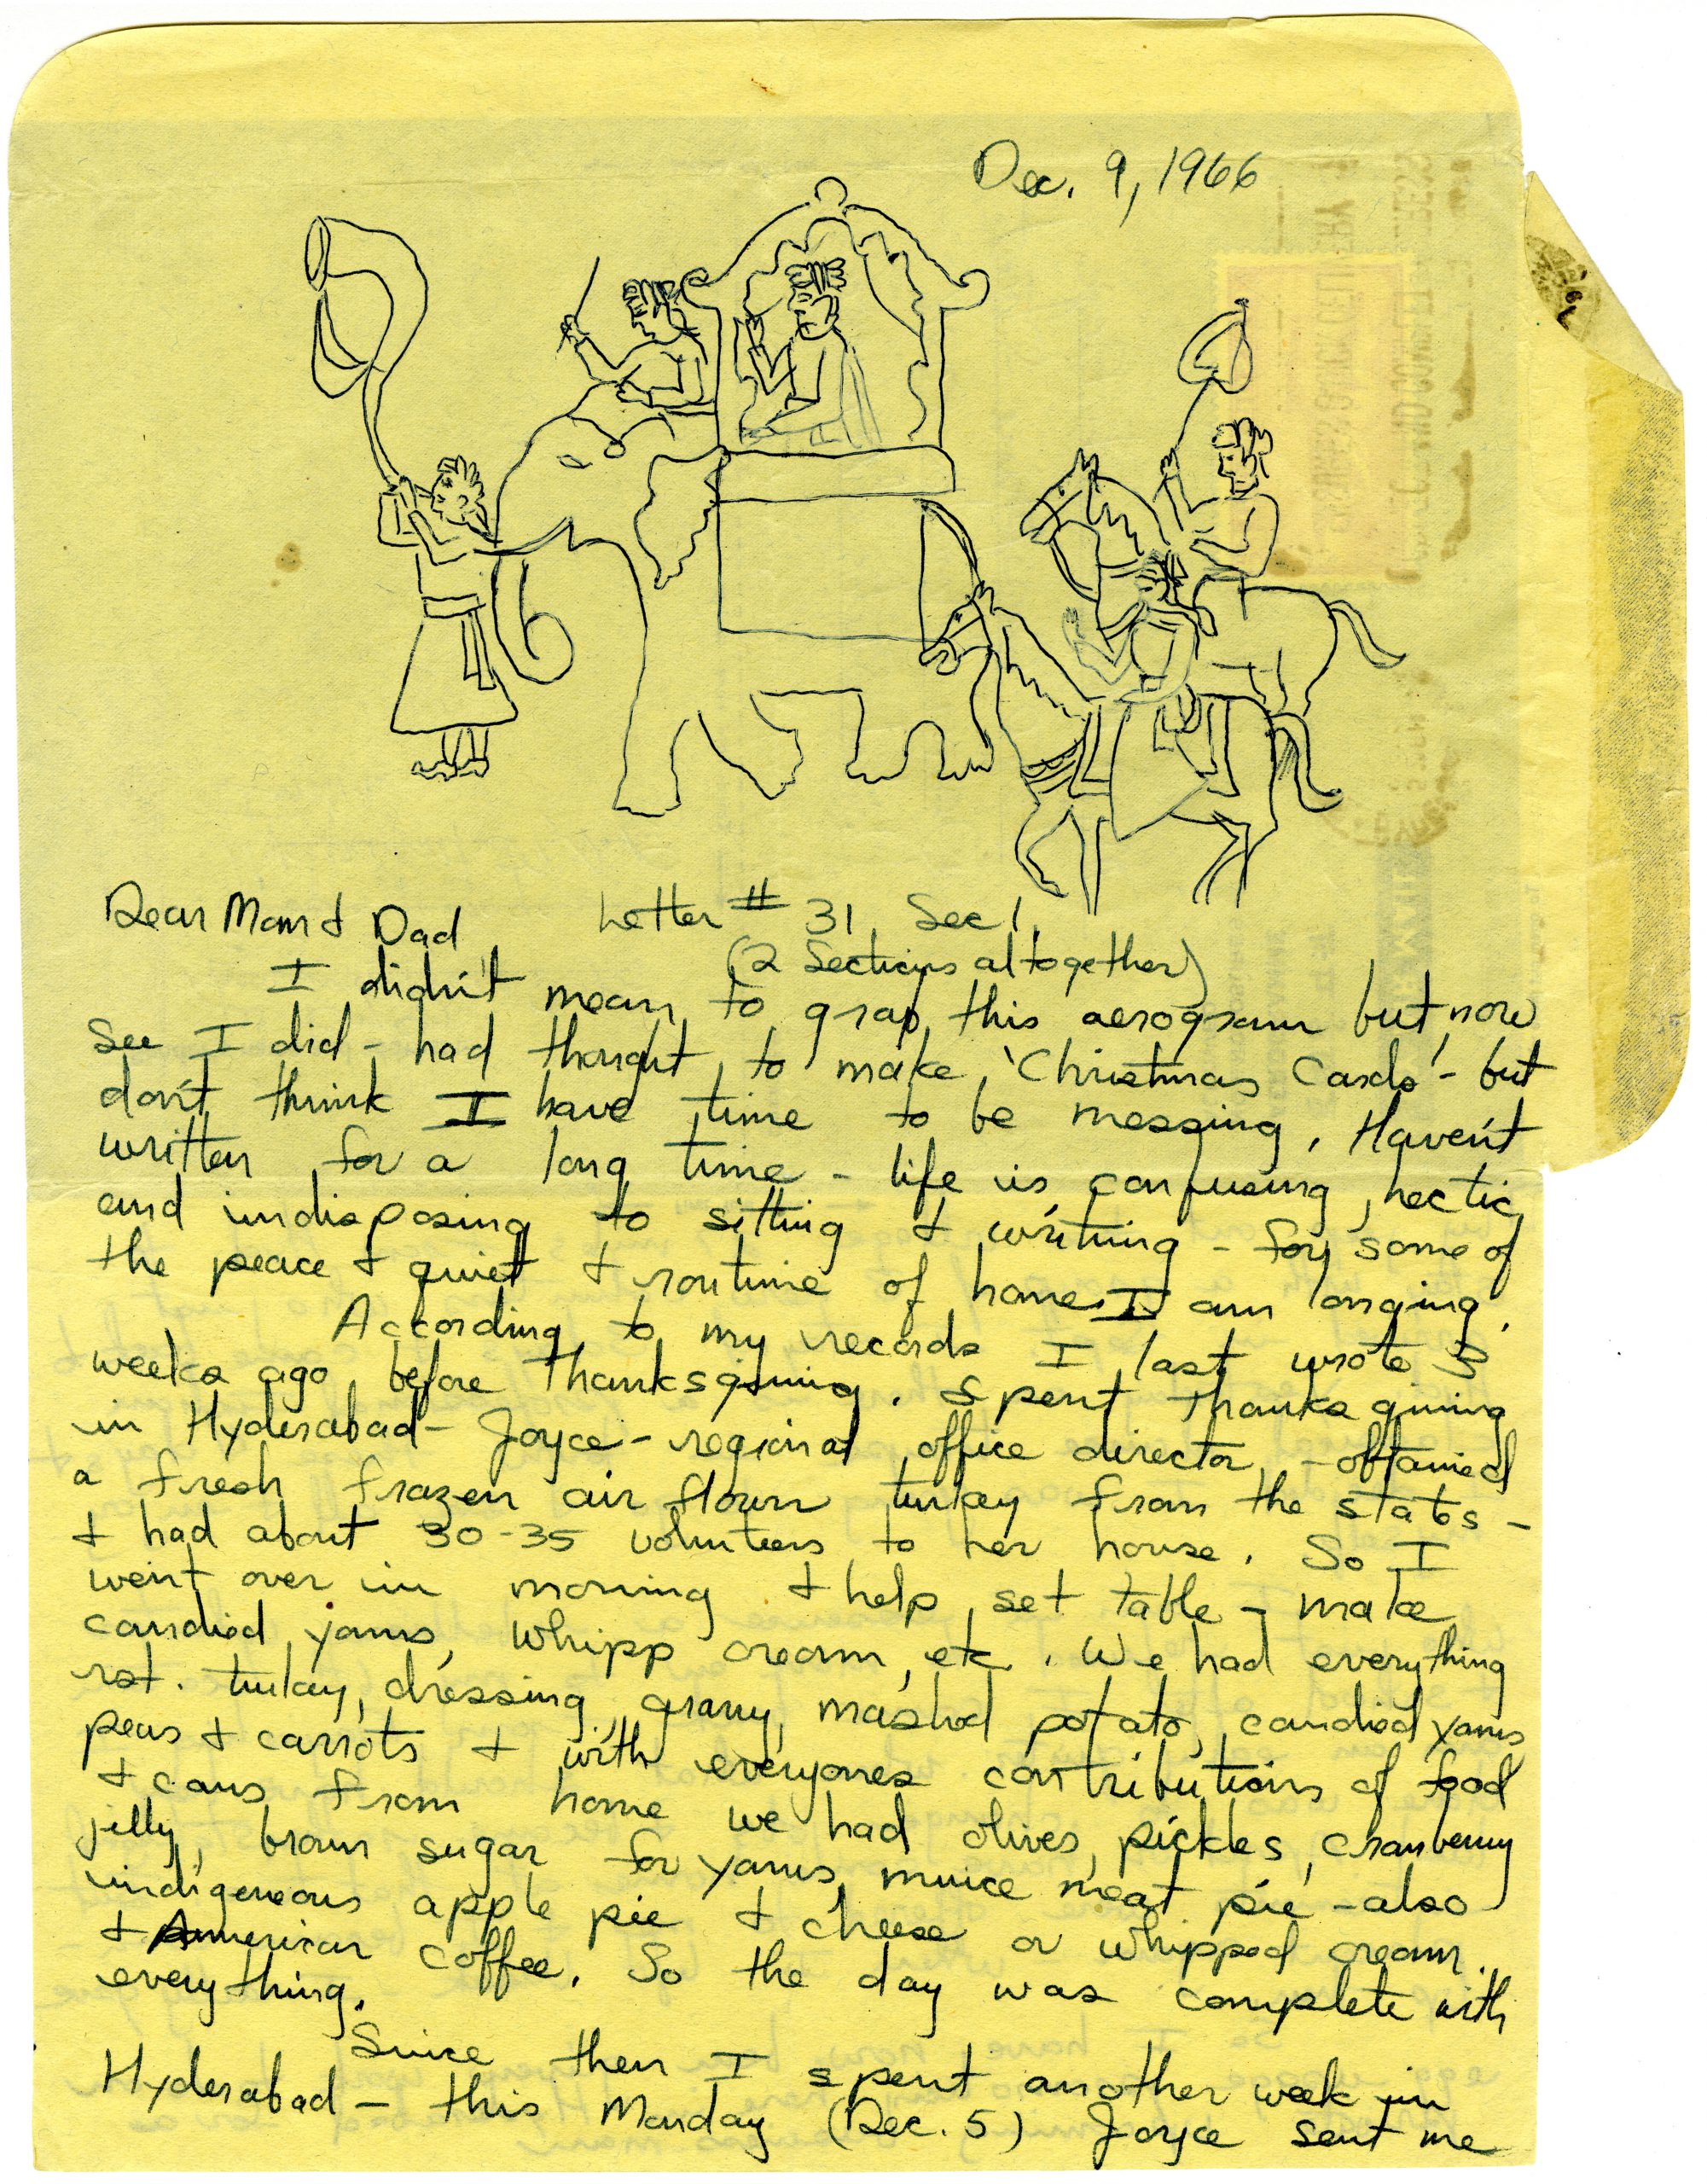 Dec. 9, 1966
Dear Mom & Dad
Letter # 31 Sec 1
(2 Sections altogether)
I didn't mean to grab this aerogram but now
see I did - had thought to make 'Christmas Cards' - but
don't think I have time to be messing. Haven't
written for a long time - life is confusing, hectic,
and indisposing to sitting & writing - for some of
the peace & quiet & routine of home I am longing.
According to my records I last wrote 3
weeks ago before Thanksgiving. Spent Thanksgiving
in Hyderabad - Joyce - regional office director - obtained
a fresh frozen air flown turkey from the states -
& had about 30-35 volunteers to her house. So I
went over in morning & help set table - make
candied yams, whipp cream, etc. We had everything
rst. turkey, dressing, gravy, mashed potato, candied yams
peas & carrots & with everyones contributions of food
& cans from home we had olives, pickles, cranberry
jelly, brown sugar for yams, mince meat pie - also
indigeneous apple pie & cheese or whipped cream.
& American coffee. So the day was complete with
everything.
Since then I spent another week in
Hyderabad - this Monday (Dec. 5) Joyce sent me